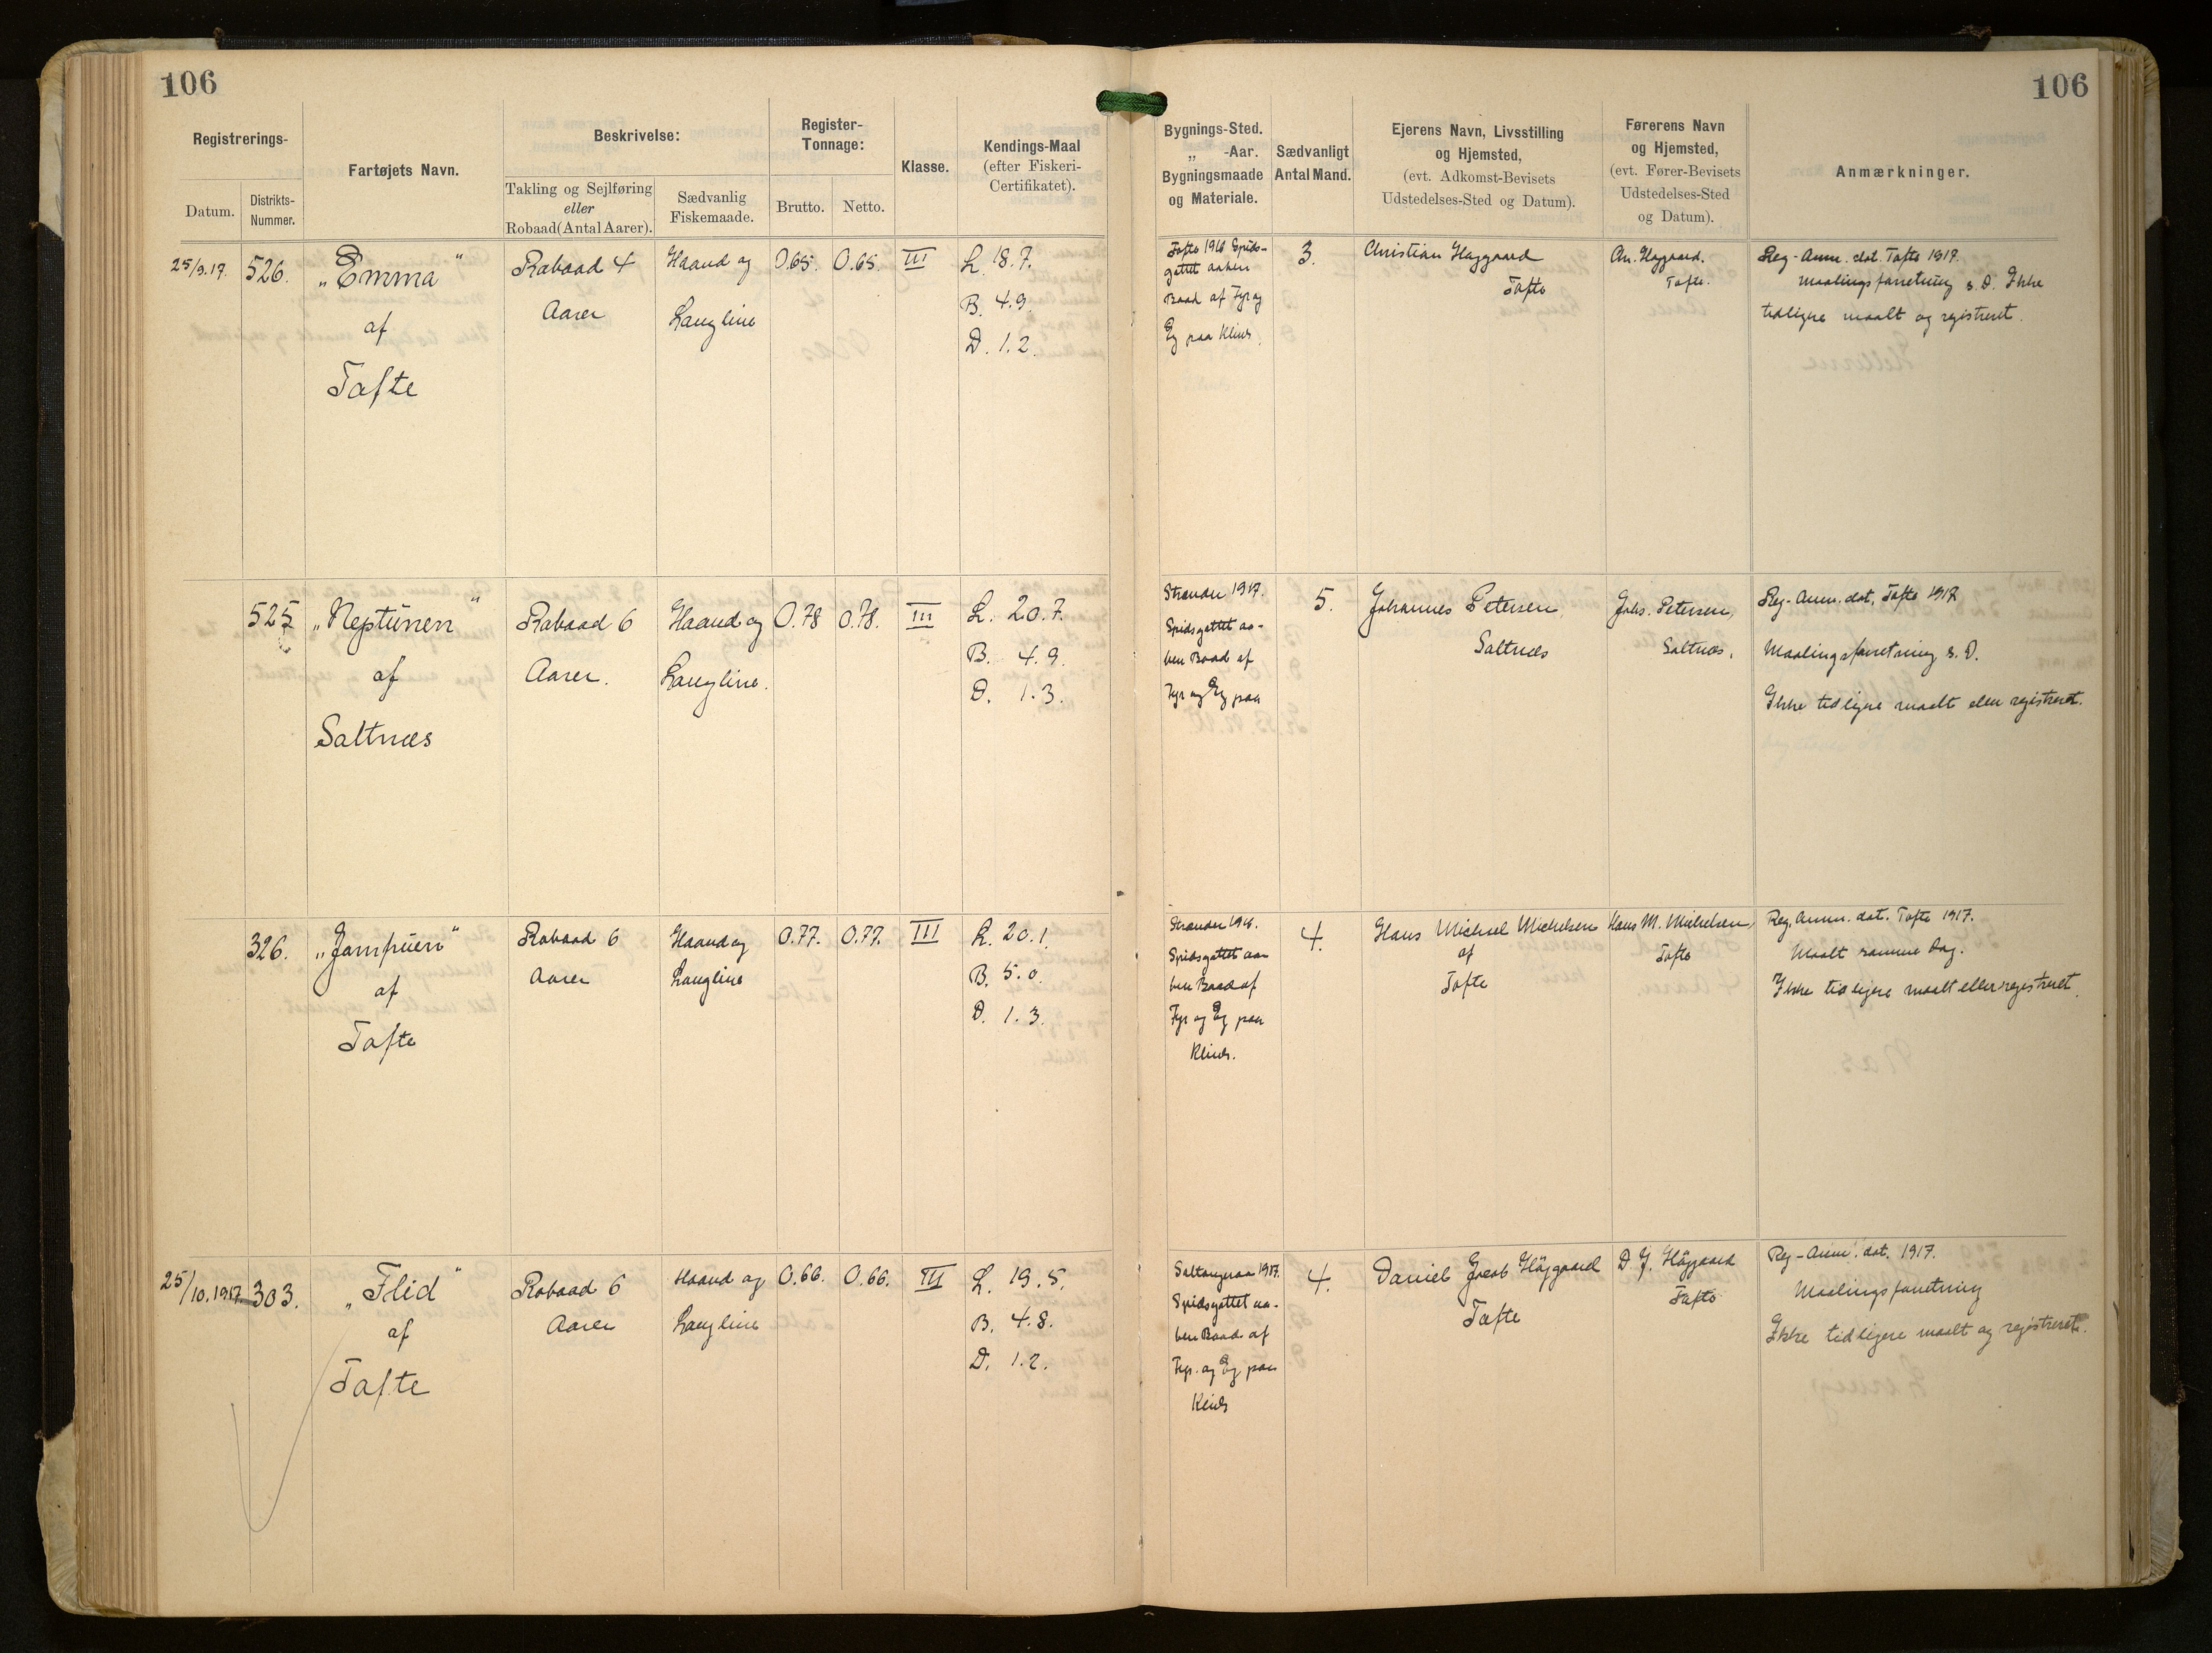 106
106
Registrerings-
Datum.
Distrikts-
Nummer.
Fartøjets Navn.
Beskrivelse:
Takling og Sejlføring
eller
Robaad (Antal Aarer).
Sædvanlig
Fiskemaade.
Register-
Tonnage:
Brutto.
Netto.
Klasse.
Kendings-Maal
(efter Fiskeri-
Certifikatet).
Bygnings-Sted.
„ -Aar.
Bygningsmaade
og Materiale.
Sædvanligt
Antal Mand.
Ejerens Navn, Livsstilling
og Hjemsted,
(evt. Adkomst-Bevisets
Udstedelses-Sted og Datum).
Førerens Navn
og Hjemsted,
(evt. Fører-Bevisets
Udstedelses-Sted
og Datum).
Anmærkninger.
25/9.17.
526.
„Emma"
af
Tofte
Robaad 4
Aarer
Haand og
Langline
0.65.
0.65.
III
L. 18.7.
B. 4.9.
D. 1.2.
Tofte 1916 Spids-
gattet aaben
Baad af Fyr og
Eg paa Klink.
3.
Christian Haggaard
Tofte
Tofte.
Reg-Anm. dat. Tofte 1917.
Maalingsforretning s. D. Ikke
tidligere maalt og registreret.
525
„Neptunen"
af
Saltnæs
Robaad 6
Aarer.
Haand og
Langline.
0.78
0.78.
III
L. 20.7.
B. 4.9.
D. 1.3.
Strander 1917.
Spidsgattet aa-
ben Baad af
Fyr og Eg paa
5.
Johannes Petersen
Saltnæs
Johs. Petersen,
Saltnæs.
Reg-Anm. dat. Tofte 1917
Maalingsforretning s. D.
Ikke tidligere maalt eller registreret.
326.
af
Tofte
Robaad 6
Aarer
Haand og
Langline
0.77.
0.77.
III
L. 20.1.
B. 5.0.
D. 1.3.
Strander 1916.
Spidsgattet aa-
ben Baad af
Fyr og Eg paa
Klink.
4.
Hans Michael Michelsen
af
Tofte
Hans M. Michelsen,
Tofte
Reg. Anm. dat. Tofte 1917.
Maalt samme Dag.
Ikke tidligere maalt eller registreret.
25/10.1917.
303.
„Flid"
af
Tofte
Robaad 6
Aarer
Haand og
Langline
0.66.
0.66.
III
L. 19.5.
B. 4.8.
D. 1.2.
Saltangeraa 1917.
Spidsgattet aa-
ben Baad af
Fyr. og Eg paa
Klink
4.
Daniel Jacob Höjgaard
Tofte
D. J. Höjgaard
Tofte
Reg-Anm. dat. 1917.
Maalingsforretning
Ikke tidligere maalt og registreret.